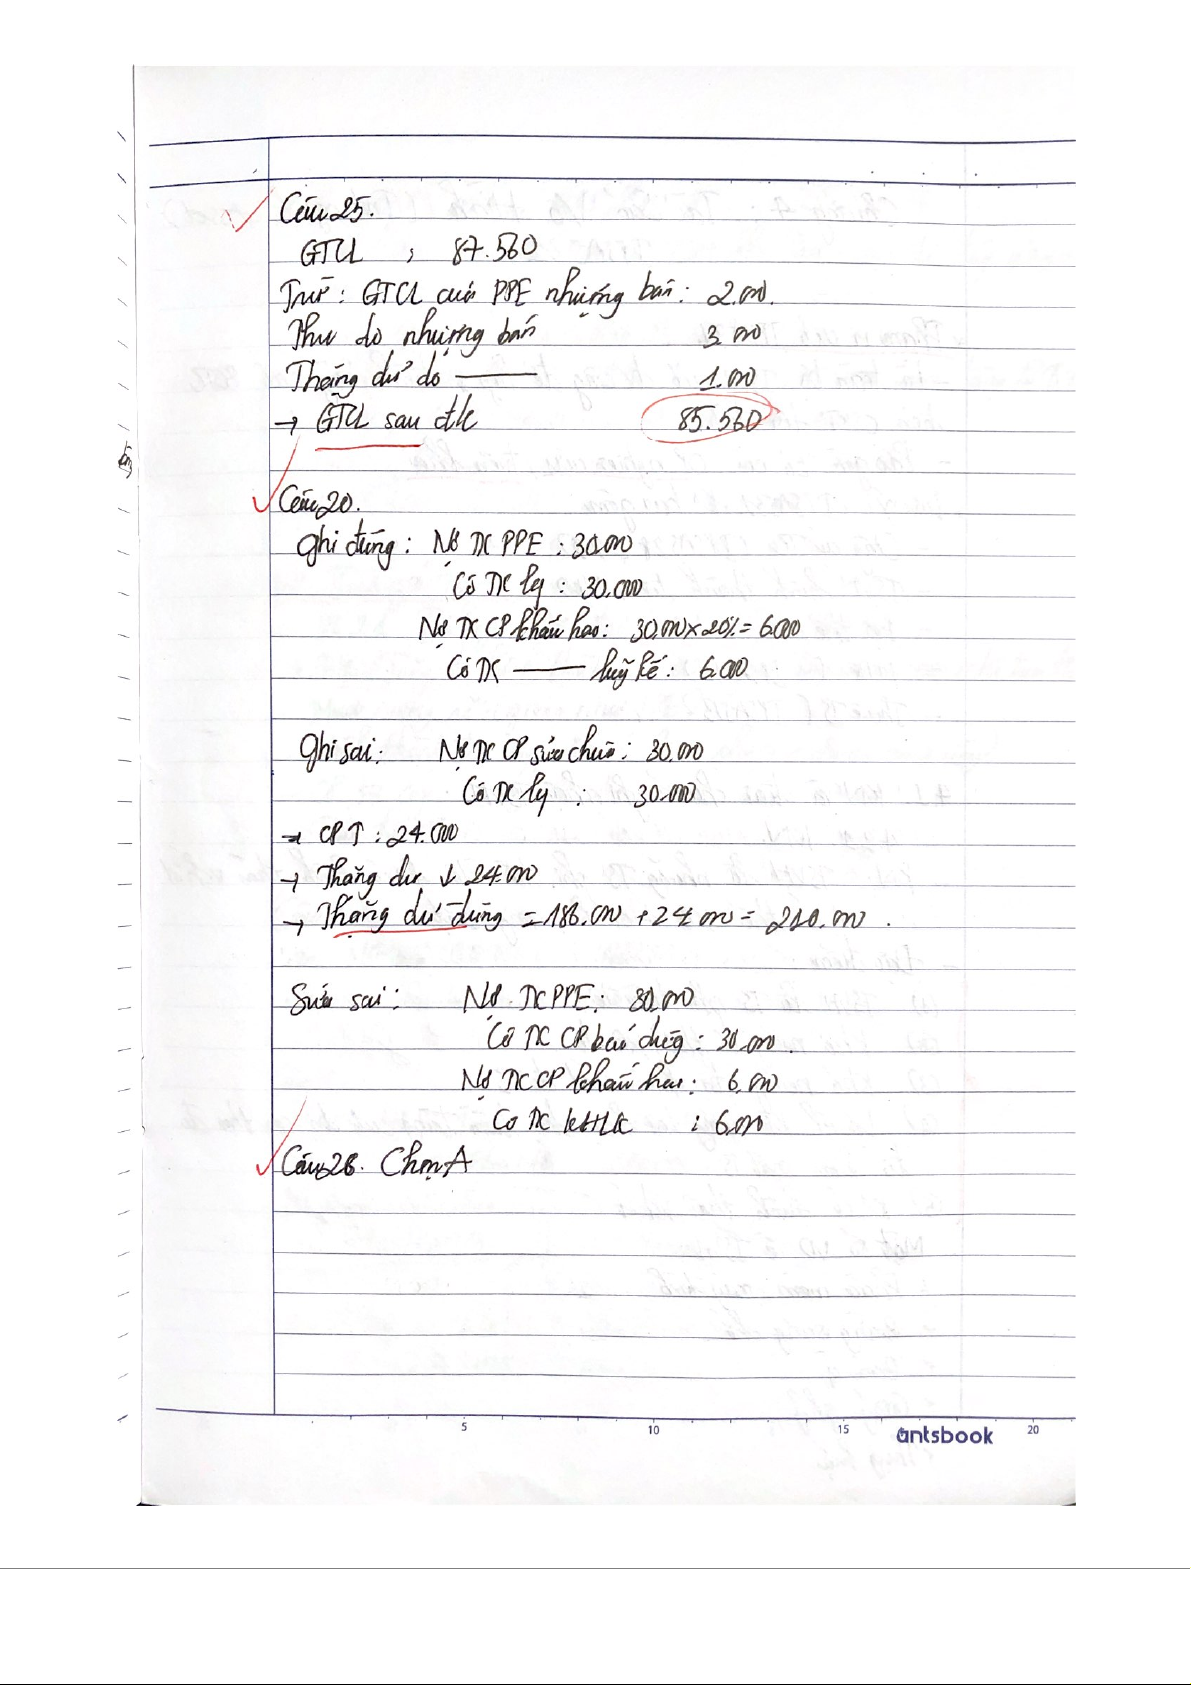 Câu 25.
GTCL : 87.560
Trừ : GTCL của PPE nhượng bán : 2.000.
Thu do nhượng bán 3.000
Thặng dư do —— 1.000
→ GTCL sau đ/c 85.560
Câu 20.
Ghi đúng : Nợ TK PPE : 30.000
Có TK : 30.000
Nợ TK CP khấu hao : 30.000 x 20% = 6.000
Có TK —— luỹ kế : 6.000
Ghi sai : Nợ TK CP sửa chữa : 30.000
Có TK : 30.000
→ CP ↑ : 24.000
→ Thặng dư ↓ 24.000
→ Thặng dư đúng = 186.000 + 24.000 = 210.000 .
Sửa sai : Nợ TK PPE : 30.000
Có TK CP : 30.000.
Nợ TK CP khấu hao : 6.000
Có TK KHLK : 6.000
Câu 26. Chọn A
5 10 15 20
antsbook